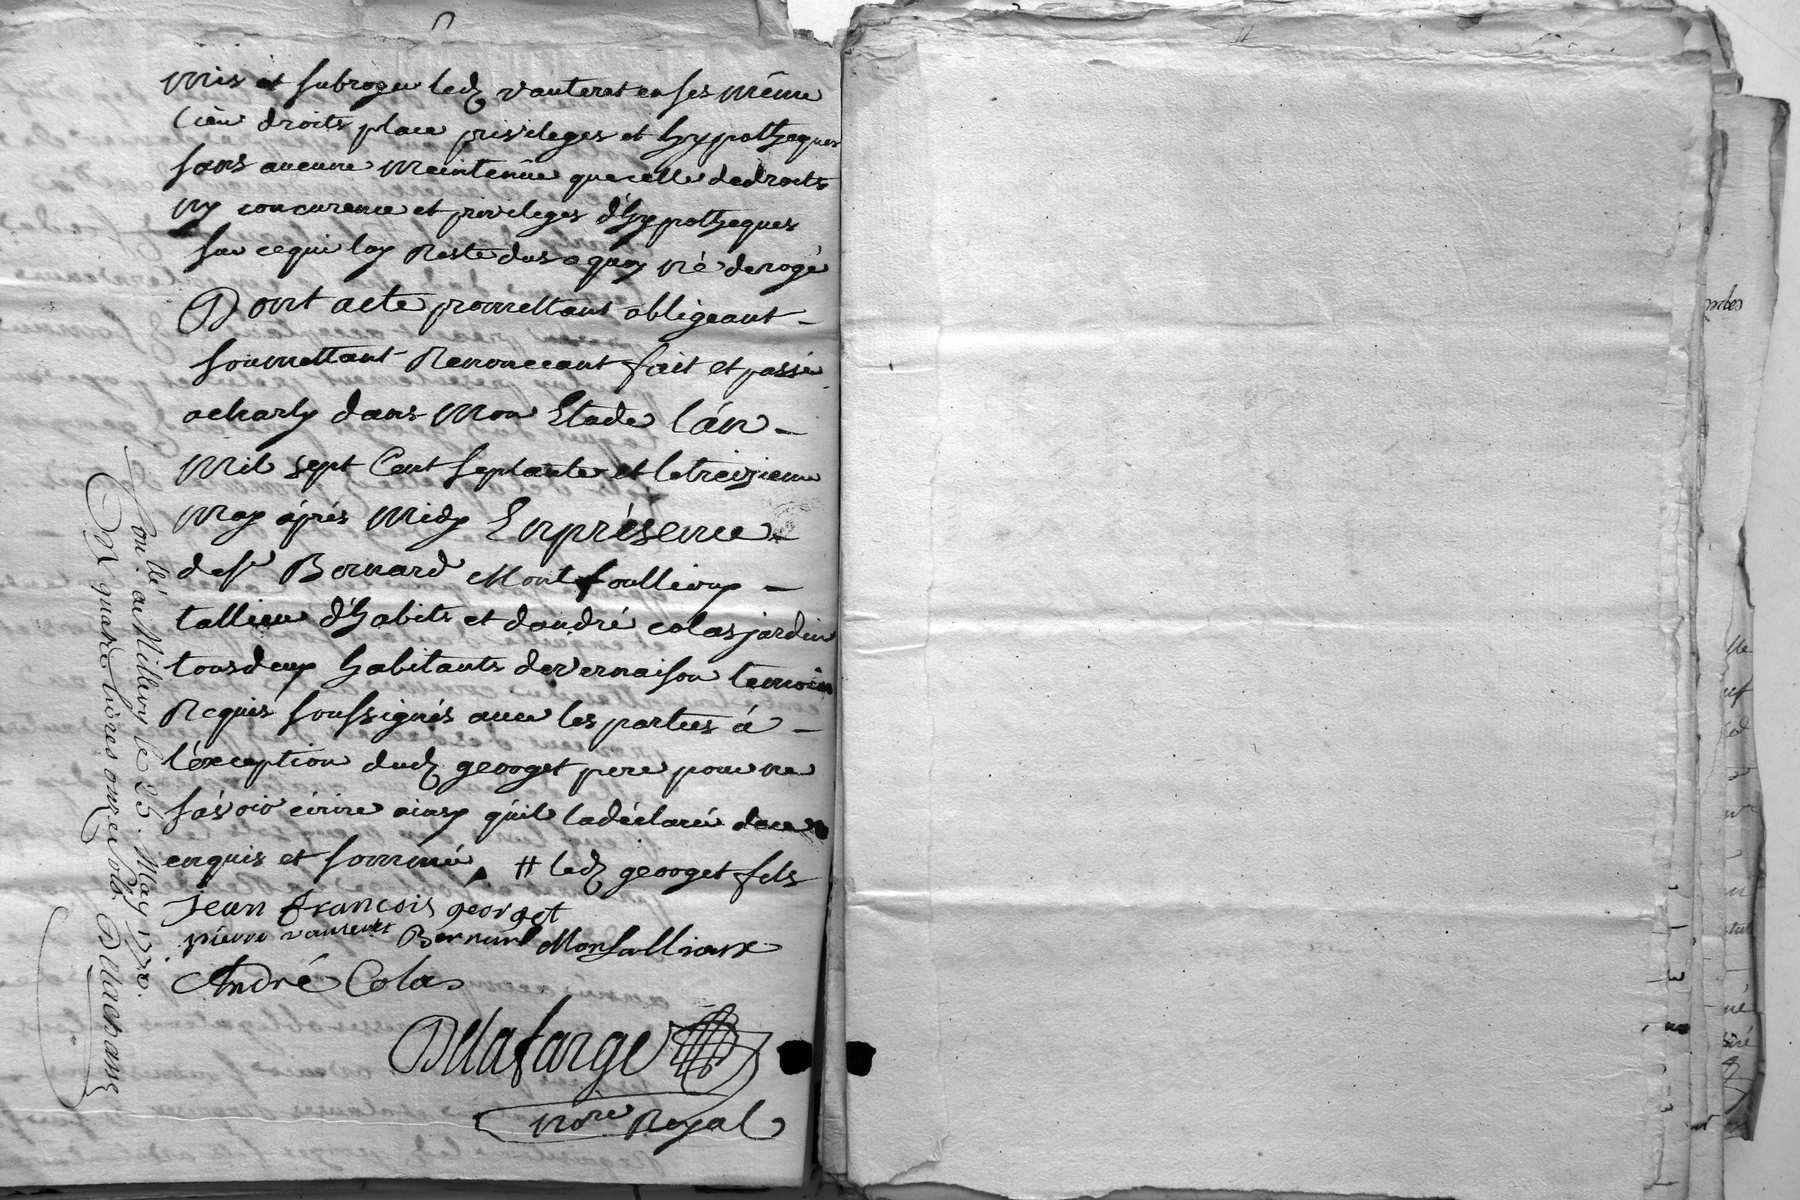 mis et subrogue led vanteret en ses même
lieu droits place privileges et hypotheques
sans aucune meintenüe que celle de droits
ny concurence et privileges d'hypotheques
sur ce qui luy Reste dus a quoy n'é derogé
Dont acte promettant obligeant
soumettant Renonceant fait et passé
a charly dans mon Etude l'an
mil sept Cent septante et le treizieme
may áprés midy En présence
de sr Bernard Montfoullioux
tallieur d'habits et d'andré colas jardin
tous deux habitants de vernaison temoin
Requis soussignés avec les parties á
l'éxception dud georget pere pour ne
sávoir écrire ainsy qu'il la déclaré de ce
enquis et sommé # led georget fils
jean francois georget
pierre vanteret Bernard Monfullioux
André Colas
Dellafarge
nore Royal
Con.llé a Millery le 23. May 1770.
Rx quatre livres onze sols Dellachasse